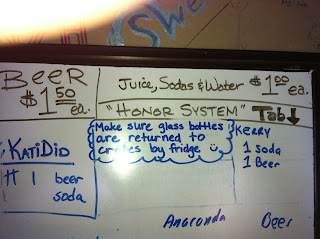 BEER
$1.50 ea.
Juice, Sodas & Water $1.00 ea.
"HONOR SYSTEM" Tab
Make sure glass bottles
are returned to
crates by fridge
KatiDid
1 beer
1 soda
KERRY
1 Soda
1 Beer
Anaconda Beer